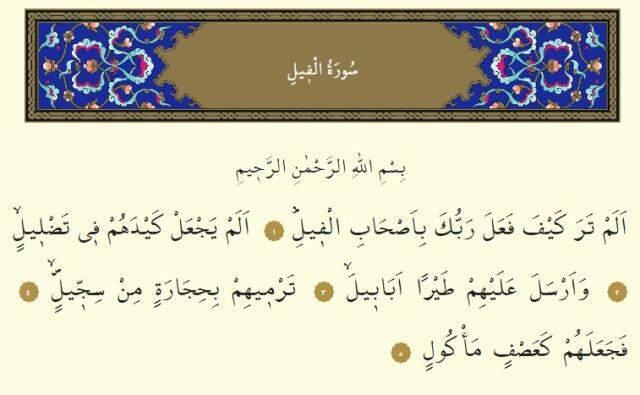 سُورَةُ الْفٖيلِ
بِسْمِ اللهِ الرَّحْمٰنِ الرَّحٖيمِ
اَلَمْ تَرَ كَيْفَ فَعَلَ رَبُّكَ بِاَصْحَابِ الْفٖيلِؕ ١ اَلَمْ يَجْعَلْ كَيْدَهُمْ فٖى تَضْلٖيلٍۙ
٢ وَاَرْسَلَ عَلَيْهِمْ طَيْرًا اَبَابٖيلَۙ ٣ تَرْمٖيهِمْ بِحِجَارَةٍ مِنْ سِجّٖيلٍۙ ٤
فَجَعَلَهُمْ كَعَصْفٍ مَأْكُولٍ ٥